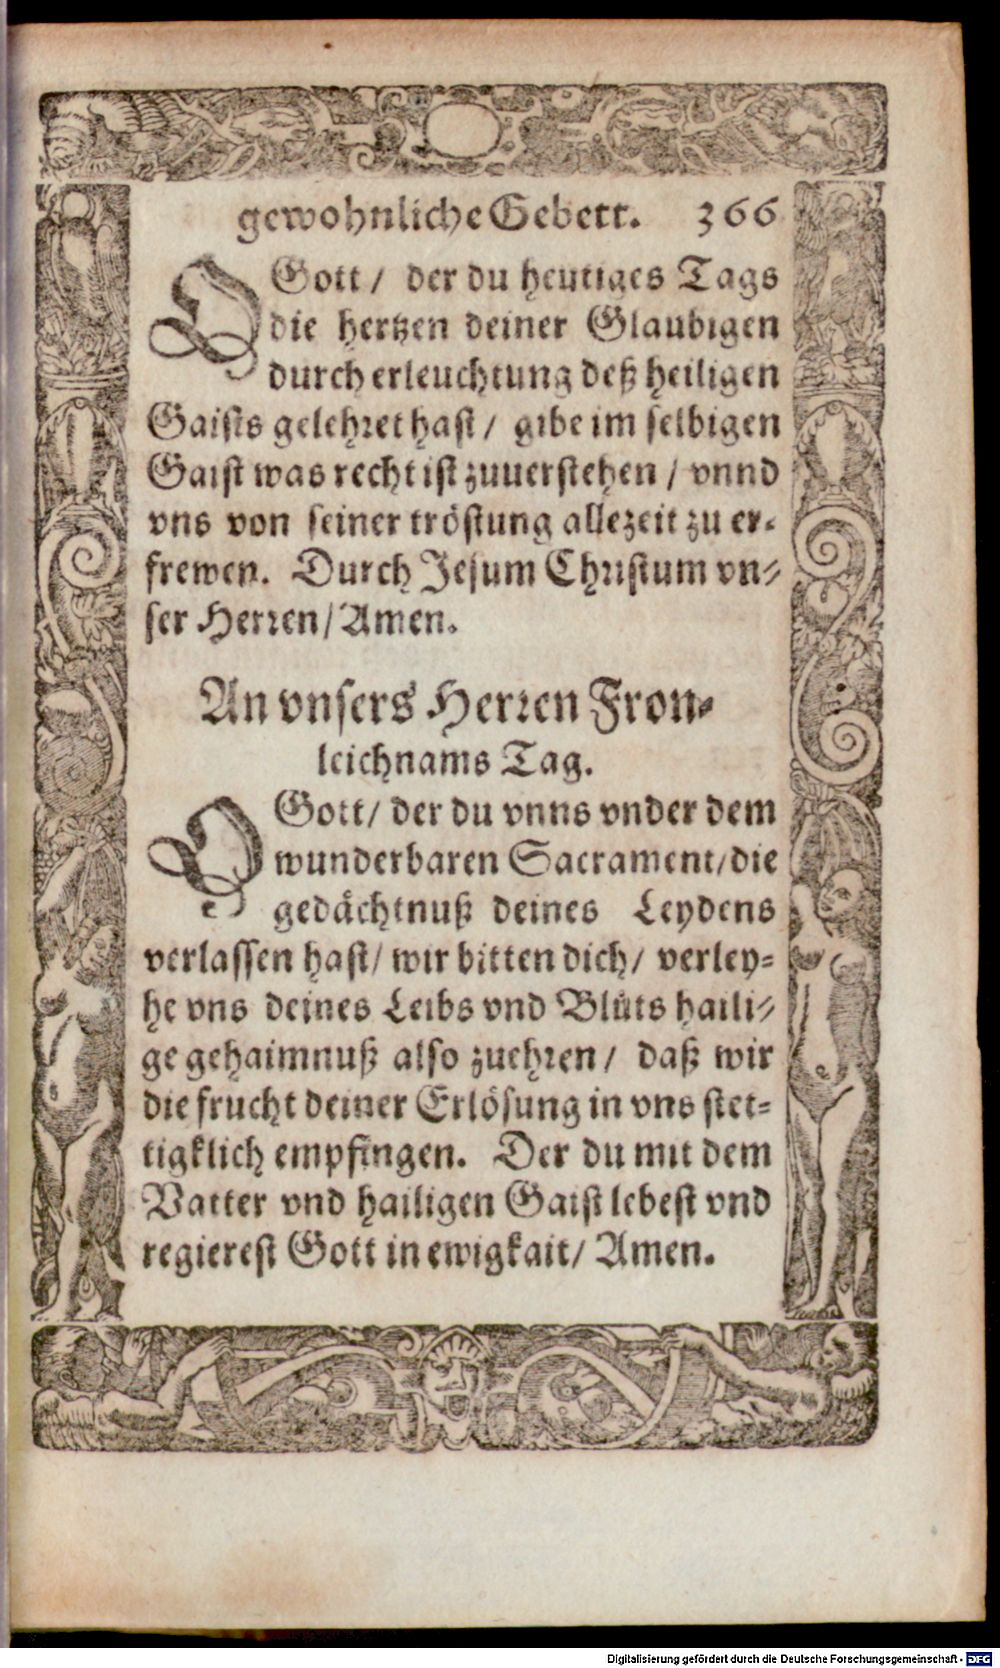 gewohnliche Gebett. 366
O Gott / der du heutiges Tags
die hertzen deiner Glaubigen
durch erleuchtung deß heiligen
Gaists gelehret hast / gibe im selbigen
Gaist was recht ist zuuerstehen / vnnd
vns von seiner tröstung allezeit zu er-
frewen. Durch Jesum Christum vn-
ser Herren / Amen.
An vnsers Herren Fron-
leichnams Tag.
O Gott / der du vnns vnder dem
wunderbaren Sacrament / die
gedächtnuß deines Leydens
verlassen hast / wir bitten dich / verley-
he vns deines Leibs vnd Blůts haili-
ge gehaimnuß also zuehren / daß wir
die frucht deiner Erlösung in vns stet-
tigklich empfingen. Der du mit dem
Vatter vnd hailigen Gaist lebest vnd
regierest Gott in ewigkait / Amen.
Digitalisierung gefördert durch die Deutsche Forschungsgemeinschaft - DFG